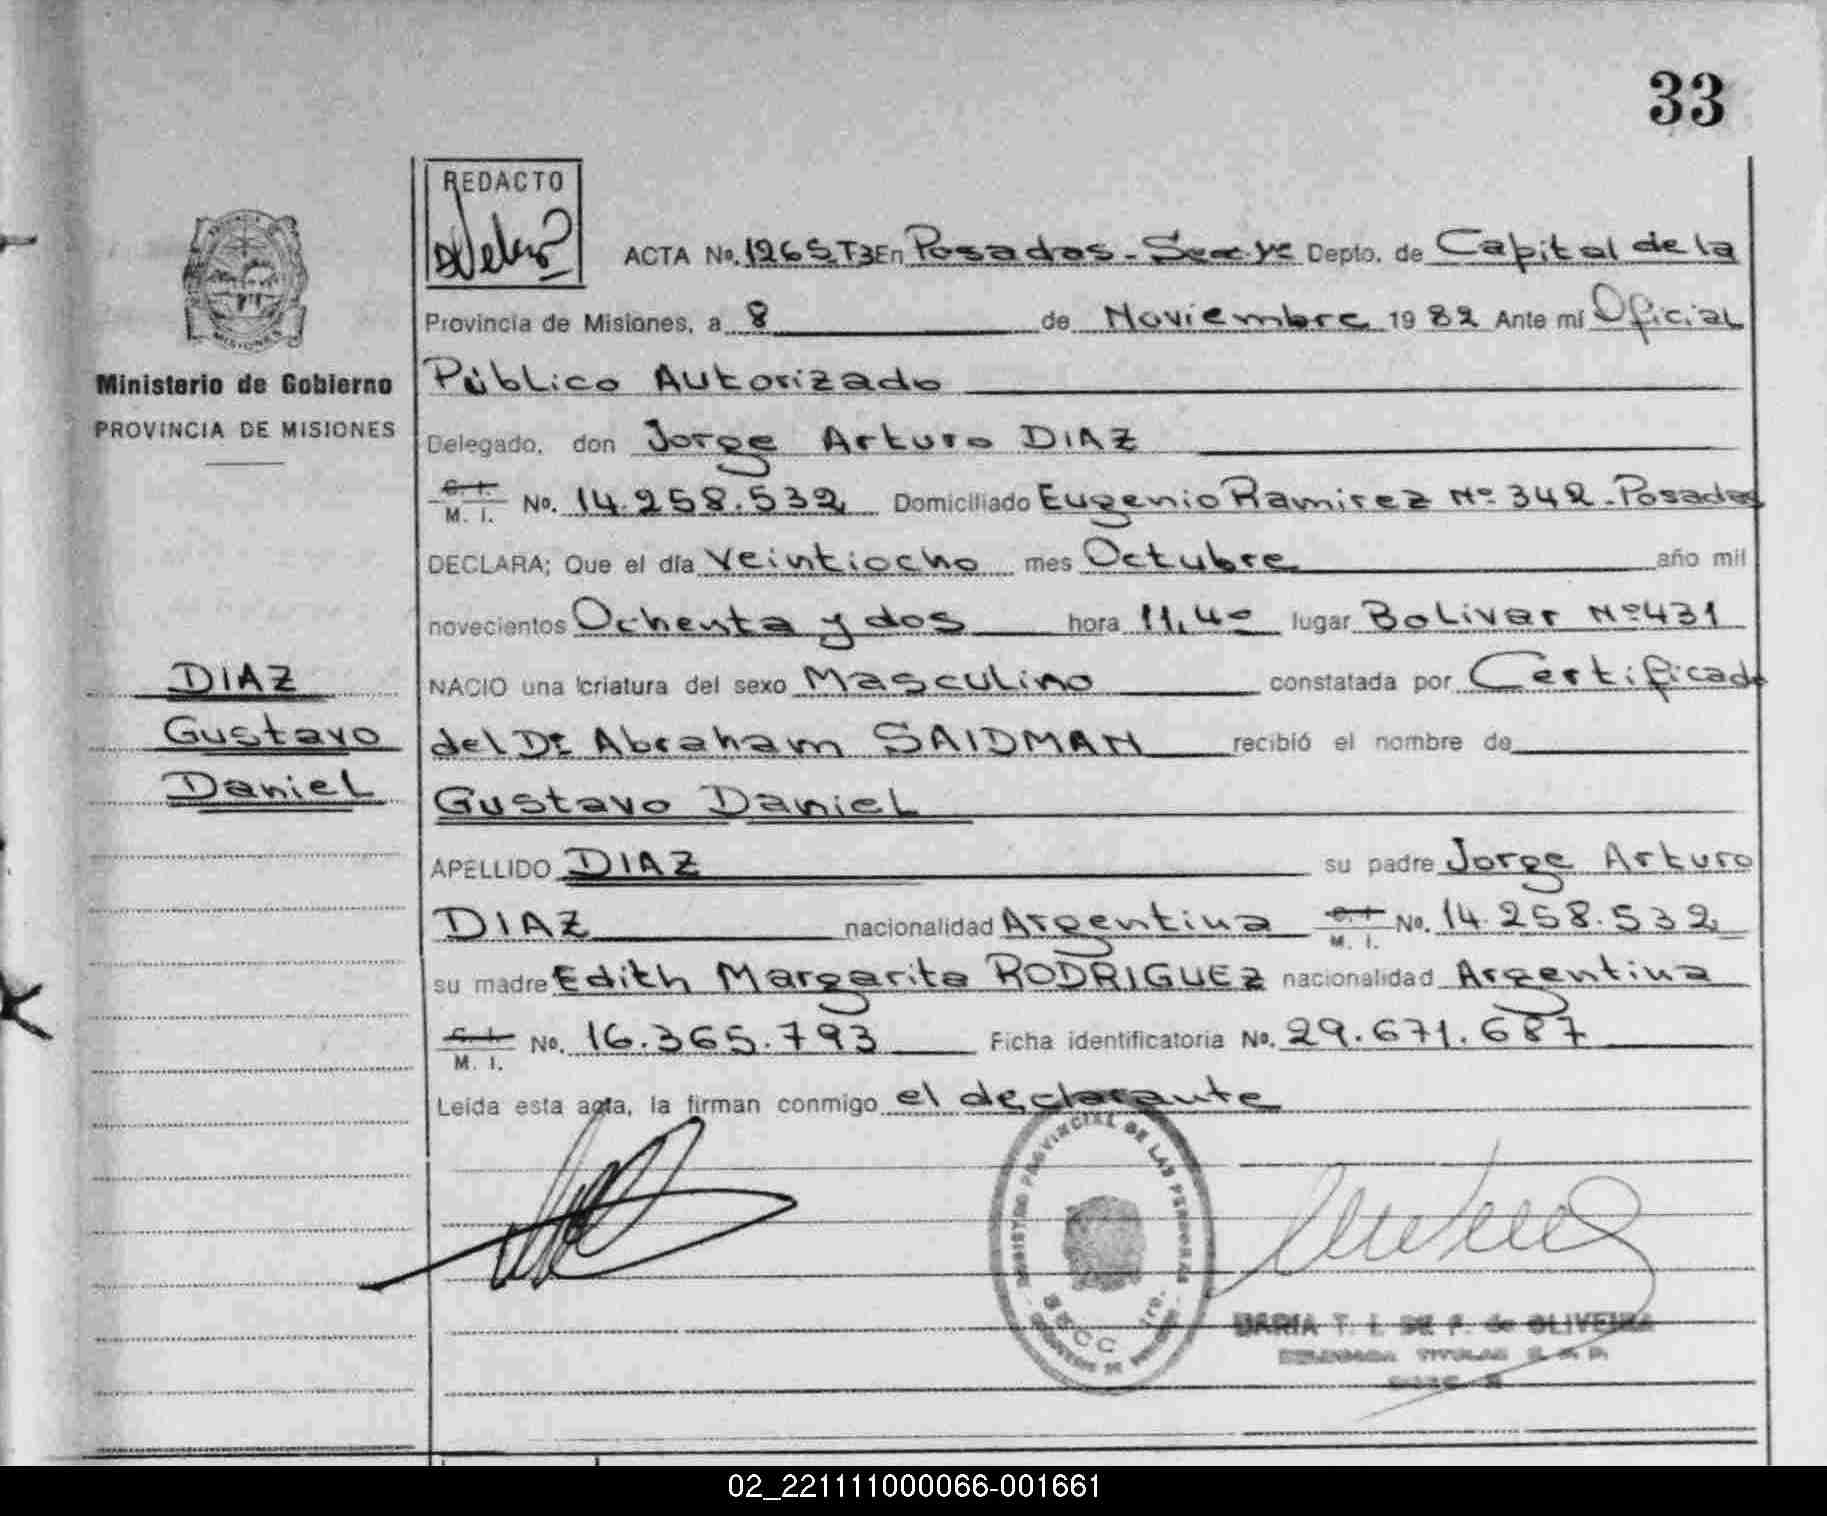 33
REDACTO
ACTA No. 1265 T3 En Posadas - Secc 1ra Depto. de Capital de la
Provincia de Misiones, a 8 de Noviembre 1982 Ante mí Oficial
Ministerio de Gobierno
Público Autorizado
PROVINCIA DE MISIONES
Delegado, don Jorge Arturo DIAZ
C. I.
M. I. No. 14.258.532 Domiciliado Eugenio Ramirez Nº 342 - Posadas
DECLARA; Que el día veintiocho mes Octubre año mil
novecientos Ochenta y dos hora 11,40 lugar Bolivar Nº 431
DIAZ
NACIO una criatura del sexo Masculino constatada por Certificado
Gustavo
del Dr Abraham SAIDMAN recibió el nombre de
Daniel
Gustavo Daniel
APELLIDO DIAZ su padre Jorge Arturo
DIAZ nacionalidad Argentina C. I. M. I. No. 14.258.532
su madre Edith Margarita RODRIGUEZ nacionalidad Argentina
C. I.
M. I. No. 16.365.793 Ficha identificatoria No. 29.671.687
Leída esta acta, la firman conmigo el declarante
REGISTRO PROVINCIAL DE LAS PERSONAS
SECC 1ra.
MARIA T. I. DE F. de OLIVEIRA
DELEGADA TITULAR R. P. P.
02_221111000066-001661